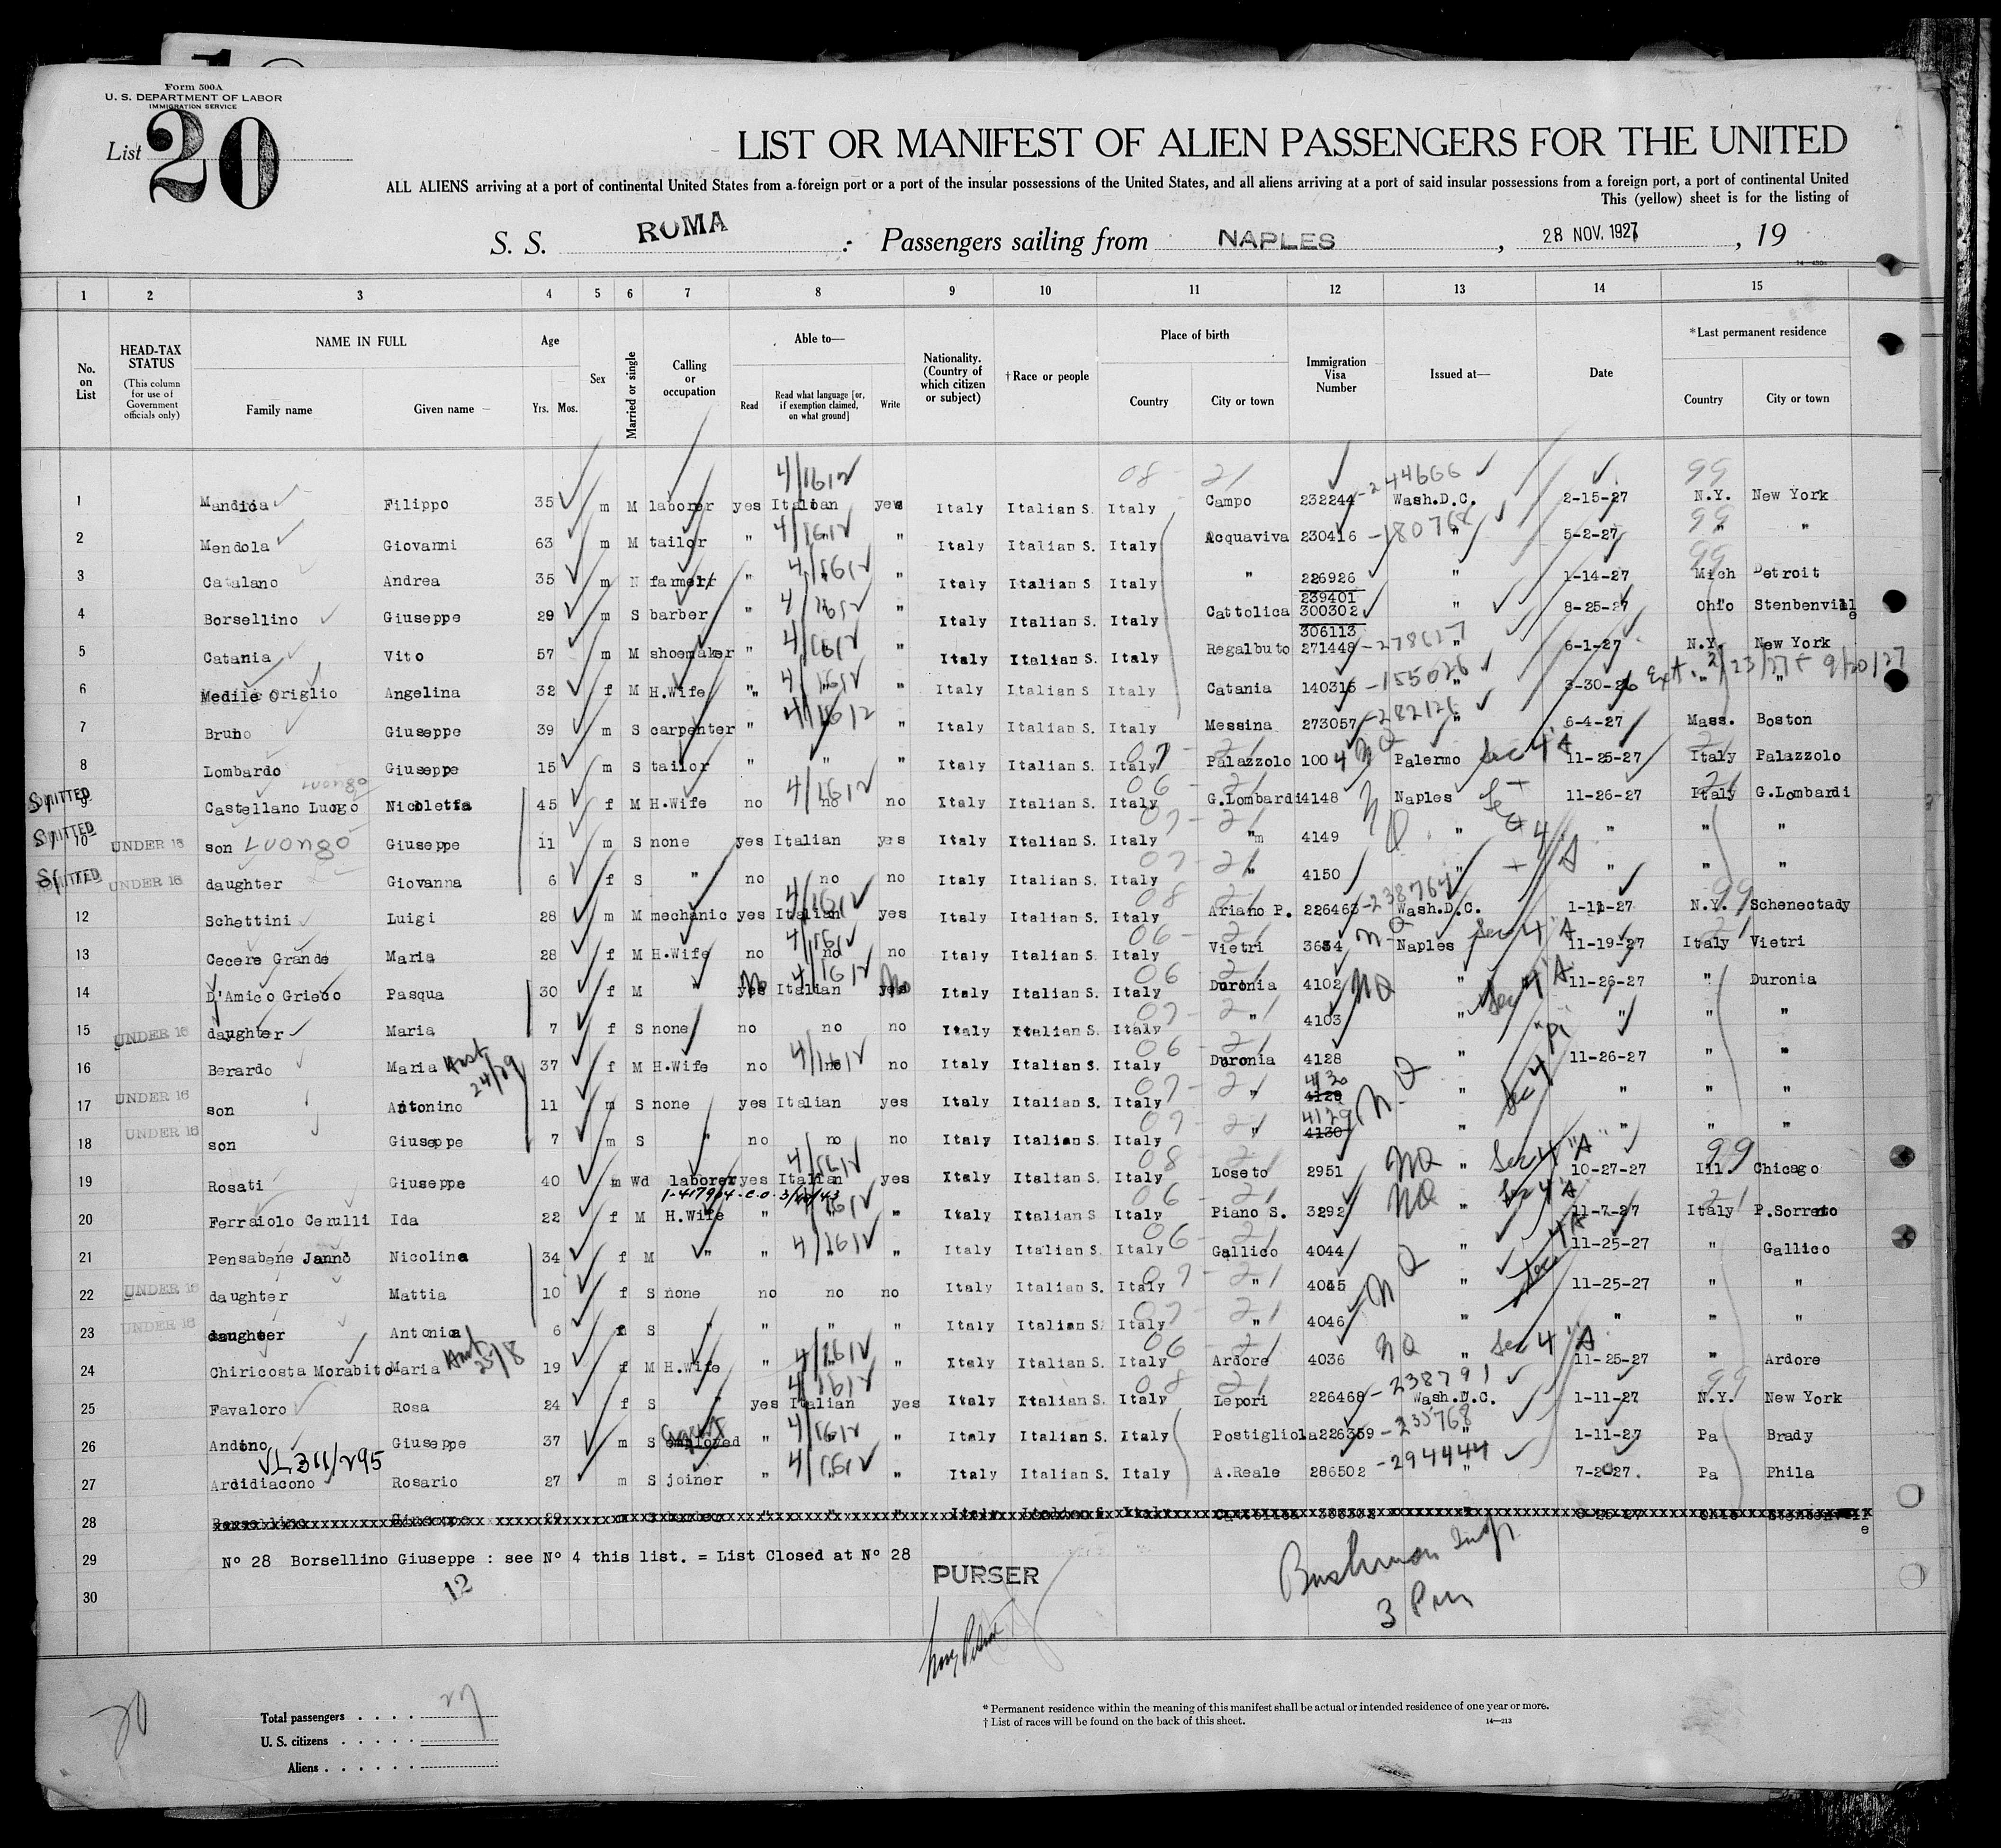 Form 500A
U. S. DEPARTMENT OF LABOR
IMMIGRATION SERVICE
List 20
LIST OR MANIFEST OF ALIEN PASSENGERS FOR THE UNITED
ALL ALIENS arriving at a port of continental United States from a foreign port or a port of the insular possessions of the United States, and all aliens arriving at a port of said insular possessions from a foreign port, a port of continental United
This (yellow) sheet is for the listing of
S. S. ROMA : Passengers sailing from NAPLES , 28 NOV. 1927 , 19
1 2 3 4 5 6 7 8 9 10 11 12 13 14 15
No. on List HEAD-TAX STATUS (This column for use of Government officials only) NAME IN FULL Family name Given name Age Yrs. Mos. Sex Married or single Calling or occupation Able to— Read Read what language [or, if exemption claimed, on what ground] Write Nationality. (Country of which citizen or subject) †Race or people Place of birth Country City or town Immigration Visa Number Issued at— Date *Last permanent residence Country City or town
1 Mandica Filippo 35 m M laborer yes Italian yes Italy Italian S. Italy Campo 232244 -244666 Wash.D.C. 2-15-27 N.Y. New York
2 Mendola Giovanni 63 m M tailor " " " Italy Italian S. Italy Acquaviva 230416 -180768 " 5-2-27 " "
3 Catalano Andrea 35 m farmer " " " Italy Italian S Italy " 226926 " 1-14-27 Mich Detroit
239401
4 Borsellino Giuseppe 29 m S barber " " " Italy Italian S. Italy Cattolica 300302 " 8-25-27 Ohio Stenbenville
306113
5 Catania Vito 57 m M shoemaker " " " Italy Italian S. Italy Regalbuto 271448 -278617 " 6-1-27 N.Y. New York
6 Medile Origlio Angelina 32 f M H.Wife " " " Italy Italian S. Italy Catania 140316 -155026 " 3-30-26 Ext. 2/23/27 + 9/20/27 " "
7 Bruno Giuseppe 39 m S carpenter " " " Italy Italian S. Italy Messina 273057 -282126 " 6-4-27 Mass. Boston
8 Lombardo Giuseppe 15 m S tailor " " " Italy Italian S. Italy Palazzolo 1004 NQ Palermo Sec 4 A 11-25-27 Italy Palazzolo
Luongo
9 Castellano Luogo Nicoletta 45 f M H.Wife no no no Italy Italian S. Italy G.Lombardi 4148 Naples 11-26-27 Italy G.Lombardi
10 UNDER 16 son Luongo Giuseppe 11 m S none yes Italian yes Italy Italian S. Italy " 4149 " " " "
11 UNDER 16 daughter Giovanna 6 f S " no no no Italy Italian S. Italy " 4150 " " " "
12 Schettini Luigi 28 m M mechanic yes Italian yes Italy Italian S. Italy Ariano P. 226463 -238764 Wash.D.C. 1-11-27 N.Y. Schenectady
13 Cecere Grande Maria 28 f M H.Wife no no no Italy Italian S. Italy Vietri 3654 NQ Naples Sec 4 "A 11-19-27 Italy Vietri
14 D'Amico Grieco Pasqua 30 f M " yes No Italian yes No Italy Italian S. Italy Duronia 4102 NQ " Sec 4 "A 11-26-27 " Duronia
15 UNDER 16 daughter Maria 7 f S none no no no Italy Italian S. Italy " 4103 " " " "
16 Berardo Maria 24/89 37 f M H.Wife no no no Italy Italian S. Italy Duronia 4128 " 11-26-27 " "
17 UNDER 16 son Antonino 11 m S none yes Italian yes Italy Italian S. Italy " 4130 4129 N.Q " Sec 4 "A" " " "
18 UNDER 16 son Giuseppe 7 m S " no no no Italy Italian S. Italy " 4129 4130 " " " "
19 Rosati Giuseppe 40 m Wd laborer yes Italian yes Italy Italian S. Italy Loseto 2951 NQ " Sec 4 "A" 10-27-27 Ill. Chicago
20 Ferraiolo Cerulli Ida 22 f M H.Wife " " " Italy Italian S Italy Piano S. 3292 NQ " Sec 4 "A 11-7-27 Italy P.Sorrento
21 Pensabene Janno Nicolina 34 f M " " " " Italy Italian S. Italy Gallico 4044 " 11-25-27 " Gallico
22 UNDER 16 daughter Mattia 10 f S none no no no Italy Italian S. Italy " 4045 NQ " Sec 4 A 11-25-27 " "
23 UNDER 16 daughter Antonia 6 f S " " " " Italy Italian S. Italy " 4046 " " " "
24 Chiricosta Morabito Maria 25/8 19 f M H.Wife " " " Italy Italian S. Italy Ardore 4036 NQ " Sec 4 "A 11-25-27 " Ardore
25 Favaloro Rosa 24 f S " yes Italian yes Italy Italian S. Italy Lepori 226468 -238791 Wash.D.C. 1-11-27 N.Y. New York
26 Andino Giuseppe 37 m S employed " " " Italy Italian S. Italy Postigliola 226359 -235768 " 1-11-27 Pa Brady
27 Ardidiacono Rosario 27 m S joiner " " " Italy Italian S. Italy A.Reale 286502 -294444 " 7-2-27. Pa Phila
28
29 Nº 28 Borsellino Giuseppe : see Nº 4 this list. = List Closed at Nº 28
30 12
PURSER
3 Pm
20
Total passengers . . . . 27
U. S. citizens . . . . .
Aliens . . . . . .
* Permanent residence within the meaning of this manifest shall be actual or intended residence of one year or more.
† List of races will be found on the back of this sheet.
14—213